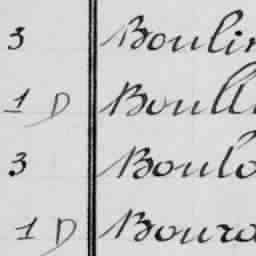 3 Boulin
1 D Boull
3 Boulo
1 D Boura